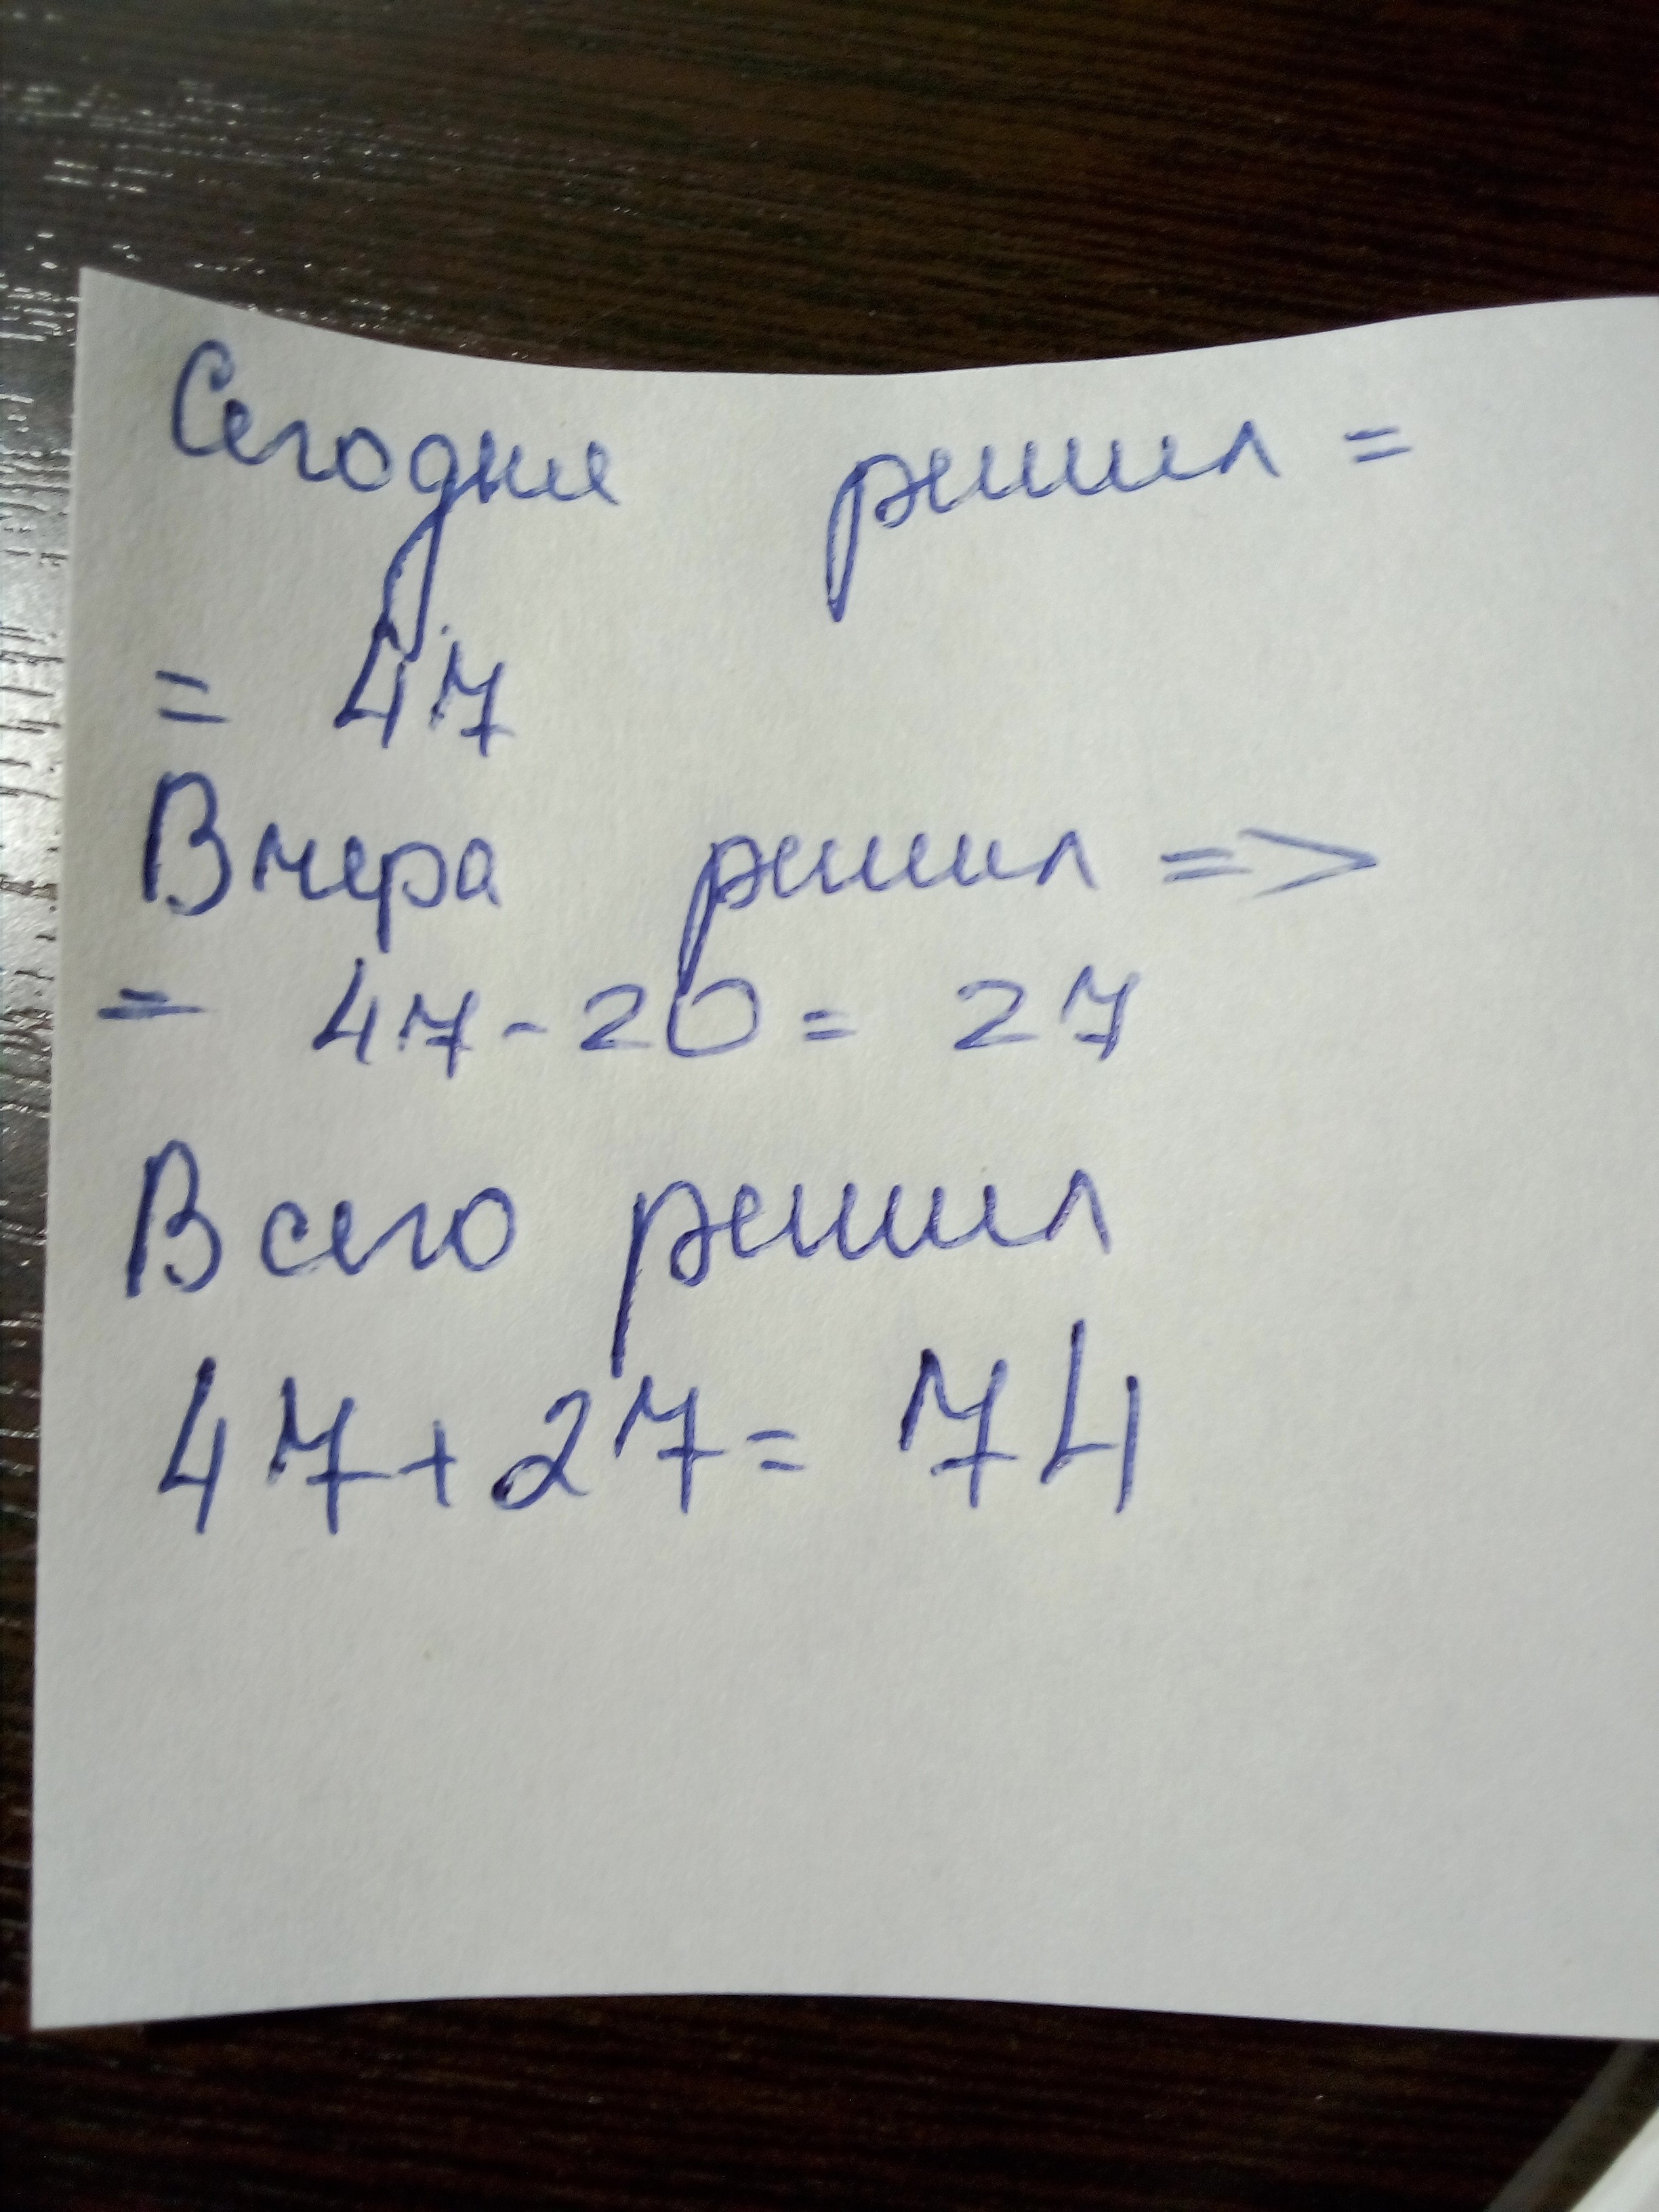 Сегодня решил =
= 47
Вчера решил =>
= 47-20= 27
Всего решил
47+27= 74